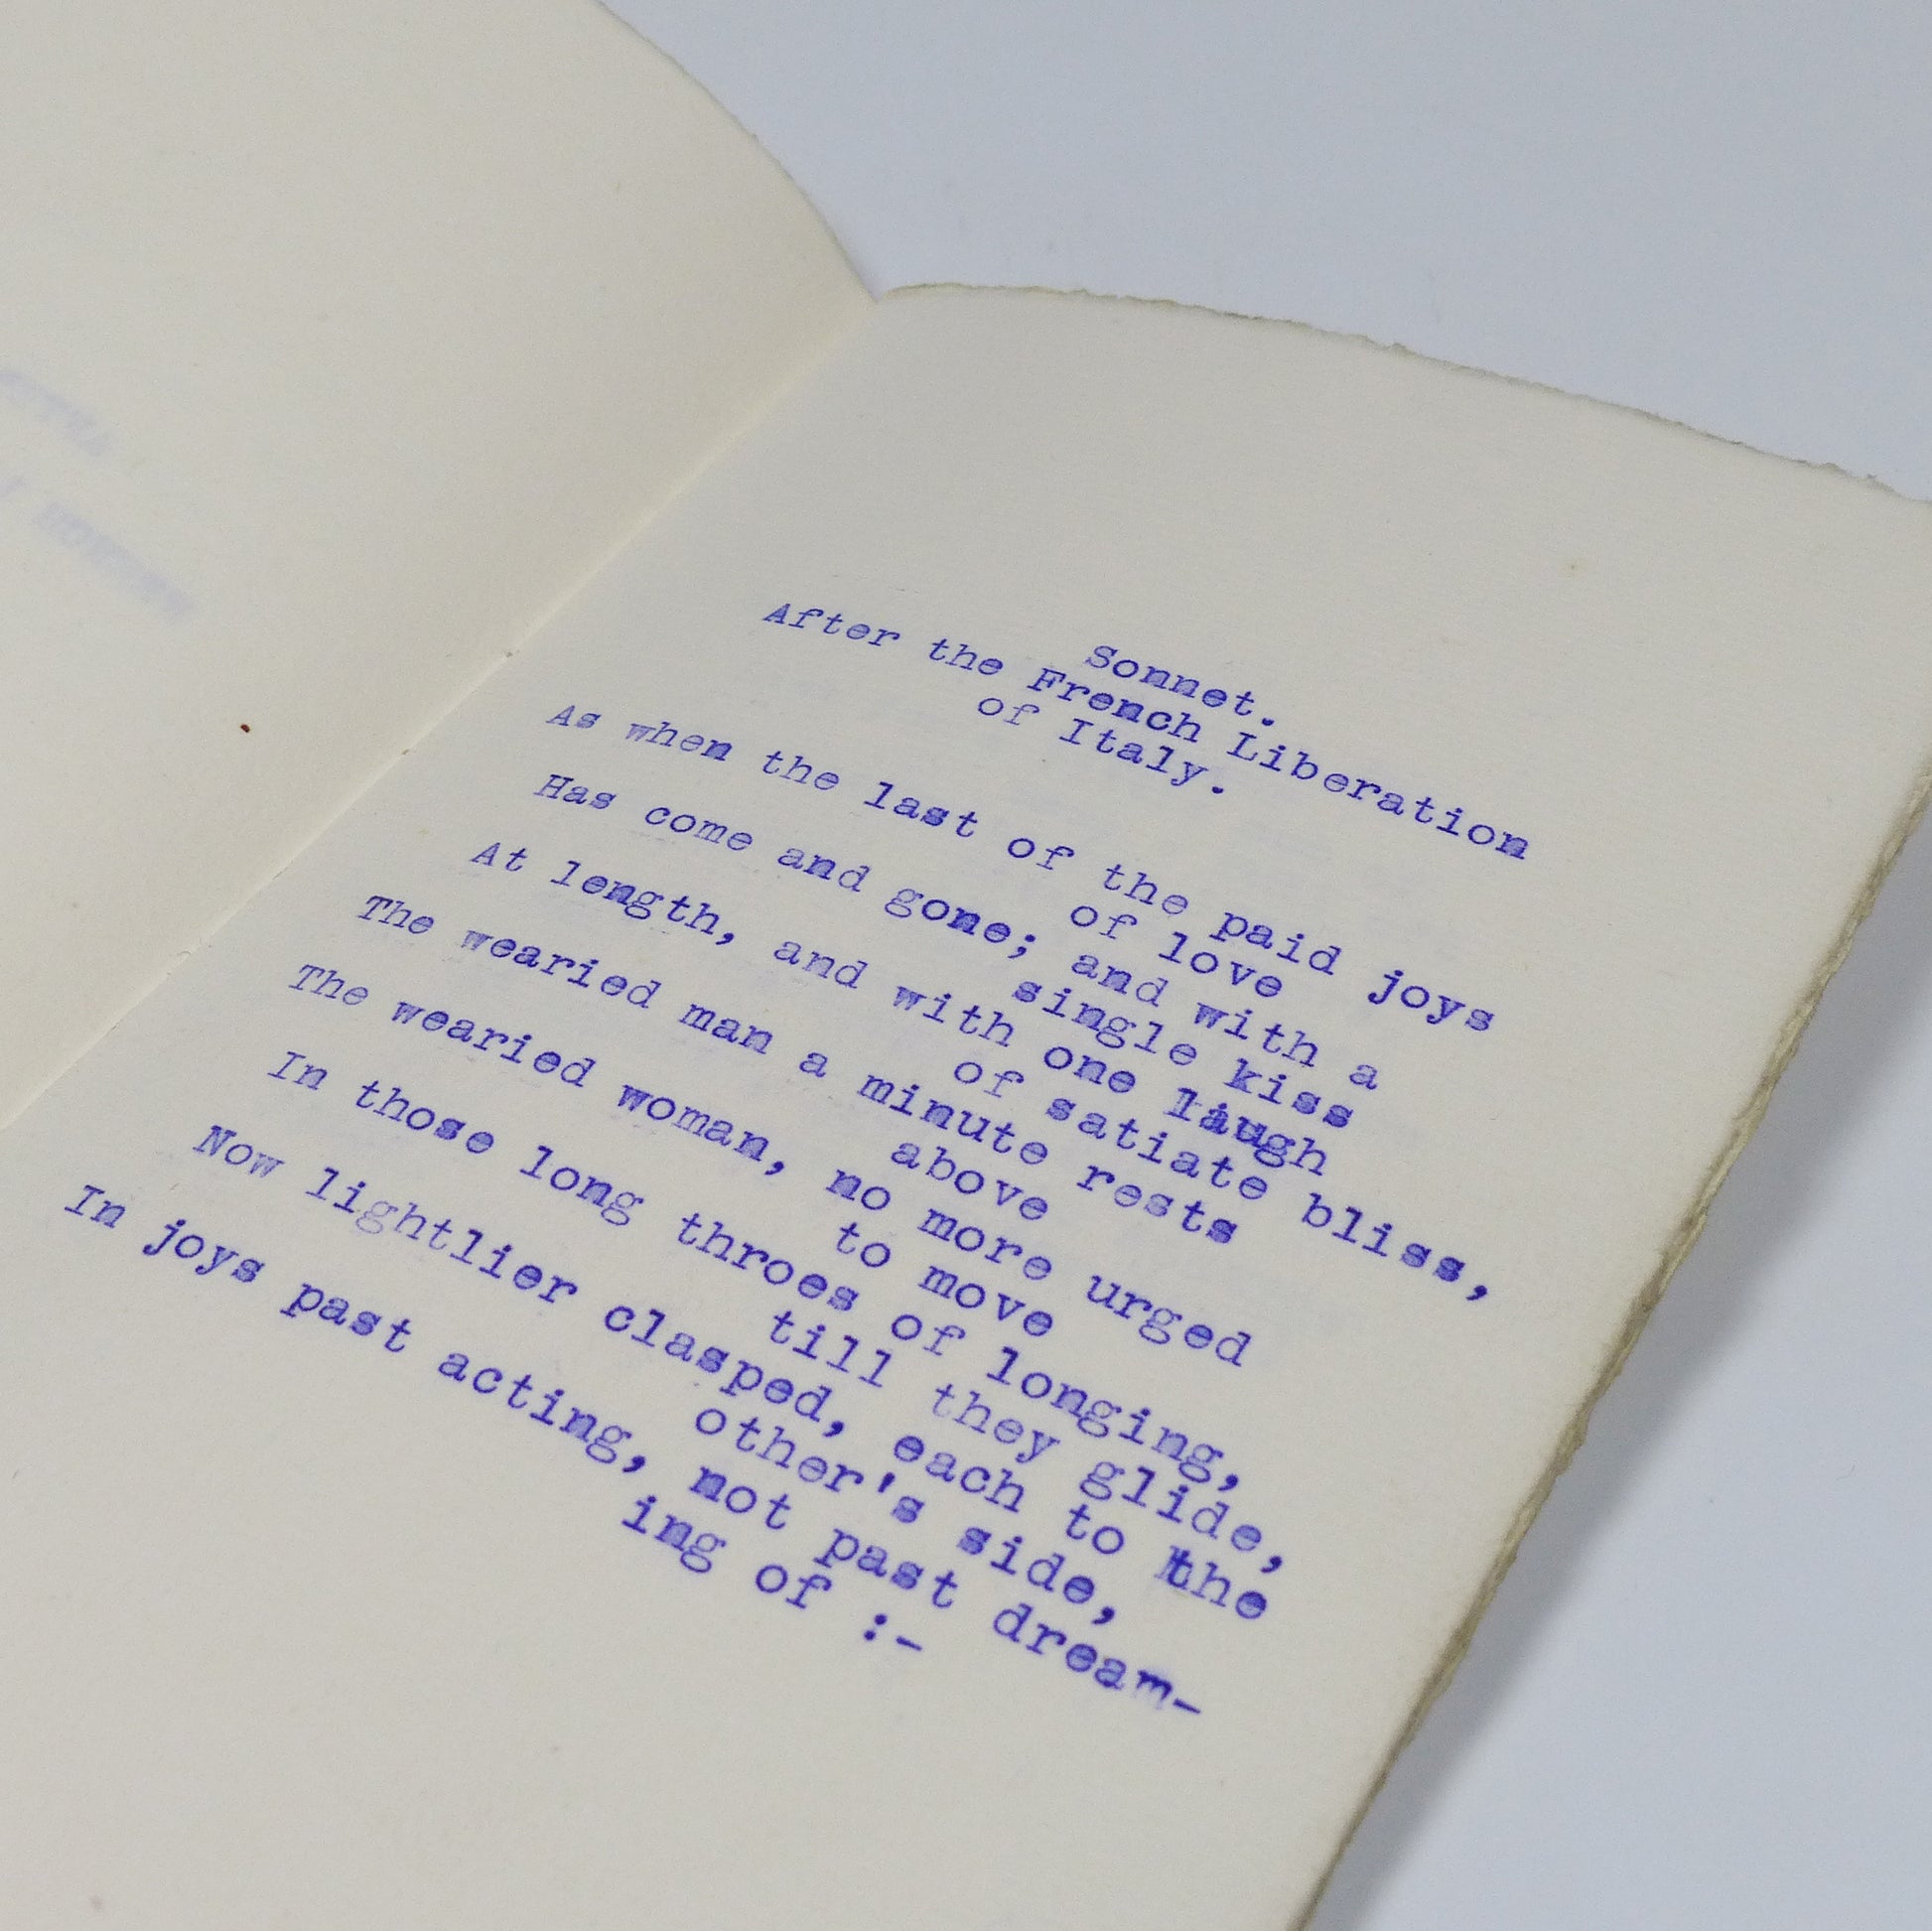 Sonnet.
After the French Liberation
of Italy.
As when the last of the paid joys
of love
Has come and gone; and with a
single kiss
At length, and with one laugh
of satiate bliss,
The wearied man a minute rests
above
The wearied woman, no more urged
to move
In those long throes of longing,
till they glide,
Now lightlier clasped, each to the
other's side,
In joys past acting, not past dream-
ing of :-